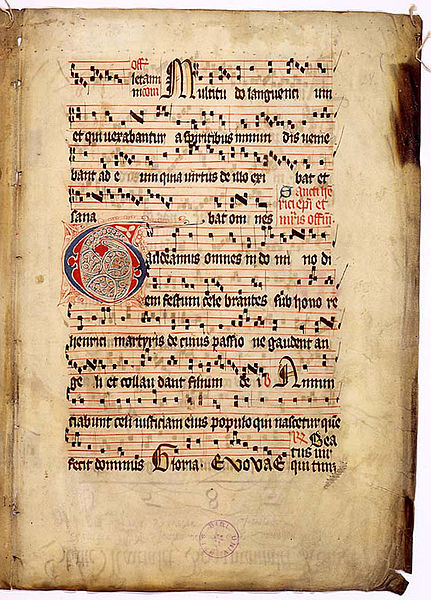 off
letam
nicom Multitu do languenci um
et qui vexabantur a spiritibus inmun dis venie
bant ad e um quia virtus de illo exi bat et
sana bat om nes Sancti he
rici epi et
mris offm
Gaudeamus omnes in do mi no di
em festum cele brantes sub hono re
henrici martyris de cuius passio ne gaudent an
ge li et collau dant filium de i Annun
ciabunt celi iusticiam eius populo qui nascetur que
fecit dominus Gloria. EVOVAE R Bea
tus vir
qui tim